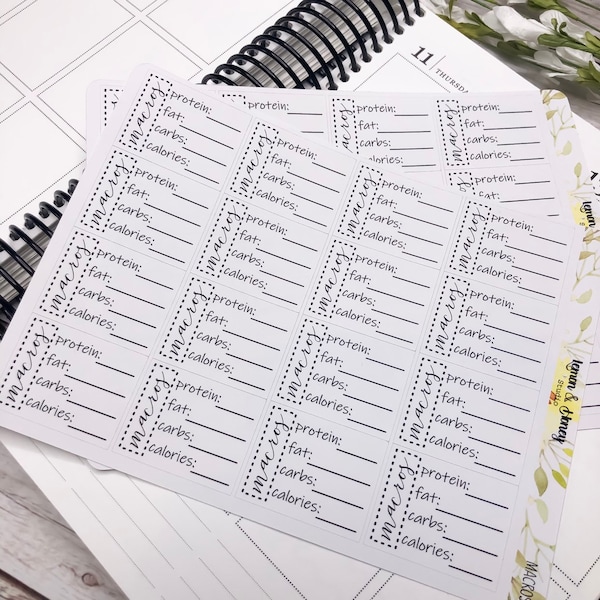 11 THURSDA
protein:
macros
protein:
fat:
carbs:
calories:
macros
protein:
fat:
carbs:
calories:
protein:
fat:
macros
protein:
fat:
carbs:
calories:
macros
protein:
fat:
carbs:
calories:
macros
protein:
fat:
carbs:
calories:
macros
protein:
fat:
carbs:
calories:
macros
protein:
fat:
carbs:
calories:
macros
protein:
fat:
carbs:
calories:
macros
protein:
fat:
carbs:
calories:
macros
protein:
fat:
carbs:
calories:
macros
protein:
fat:
carbs:
calories:
macros
protein:
fat:
carbs:
calories:
macros
protein:
fat:
carbs:
calories:
macros
protein:
fat:
carbs:
calories:
macros
protein:
fat:
carbs:
calories:
macros
protein:
fat:
carbs:
calories:
macros
protein:
fat:
carbs:
calories:
macros
protein:
fat:
carbs:
calories:
lemon
lemon & Honey
Studio
MACRO